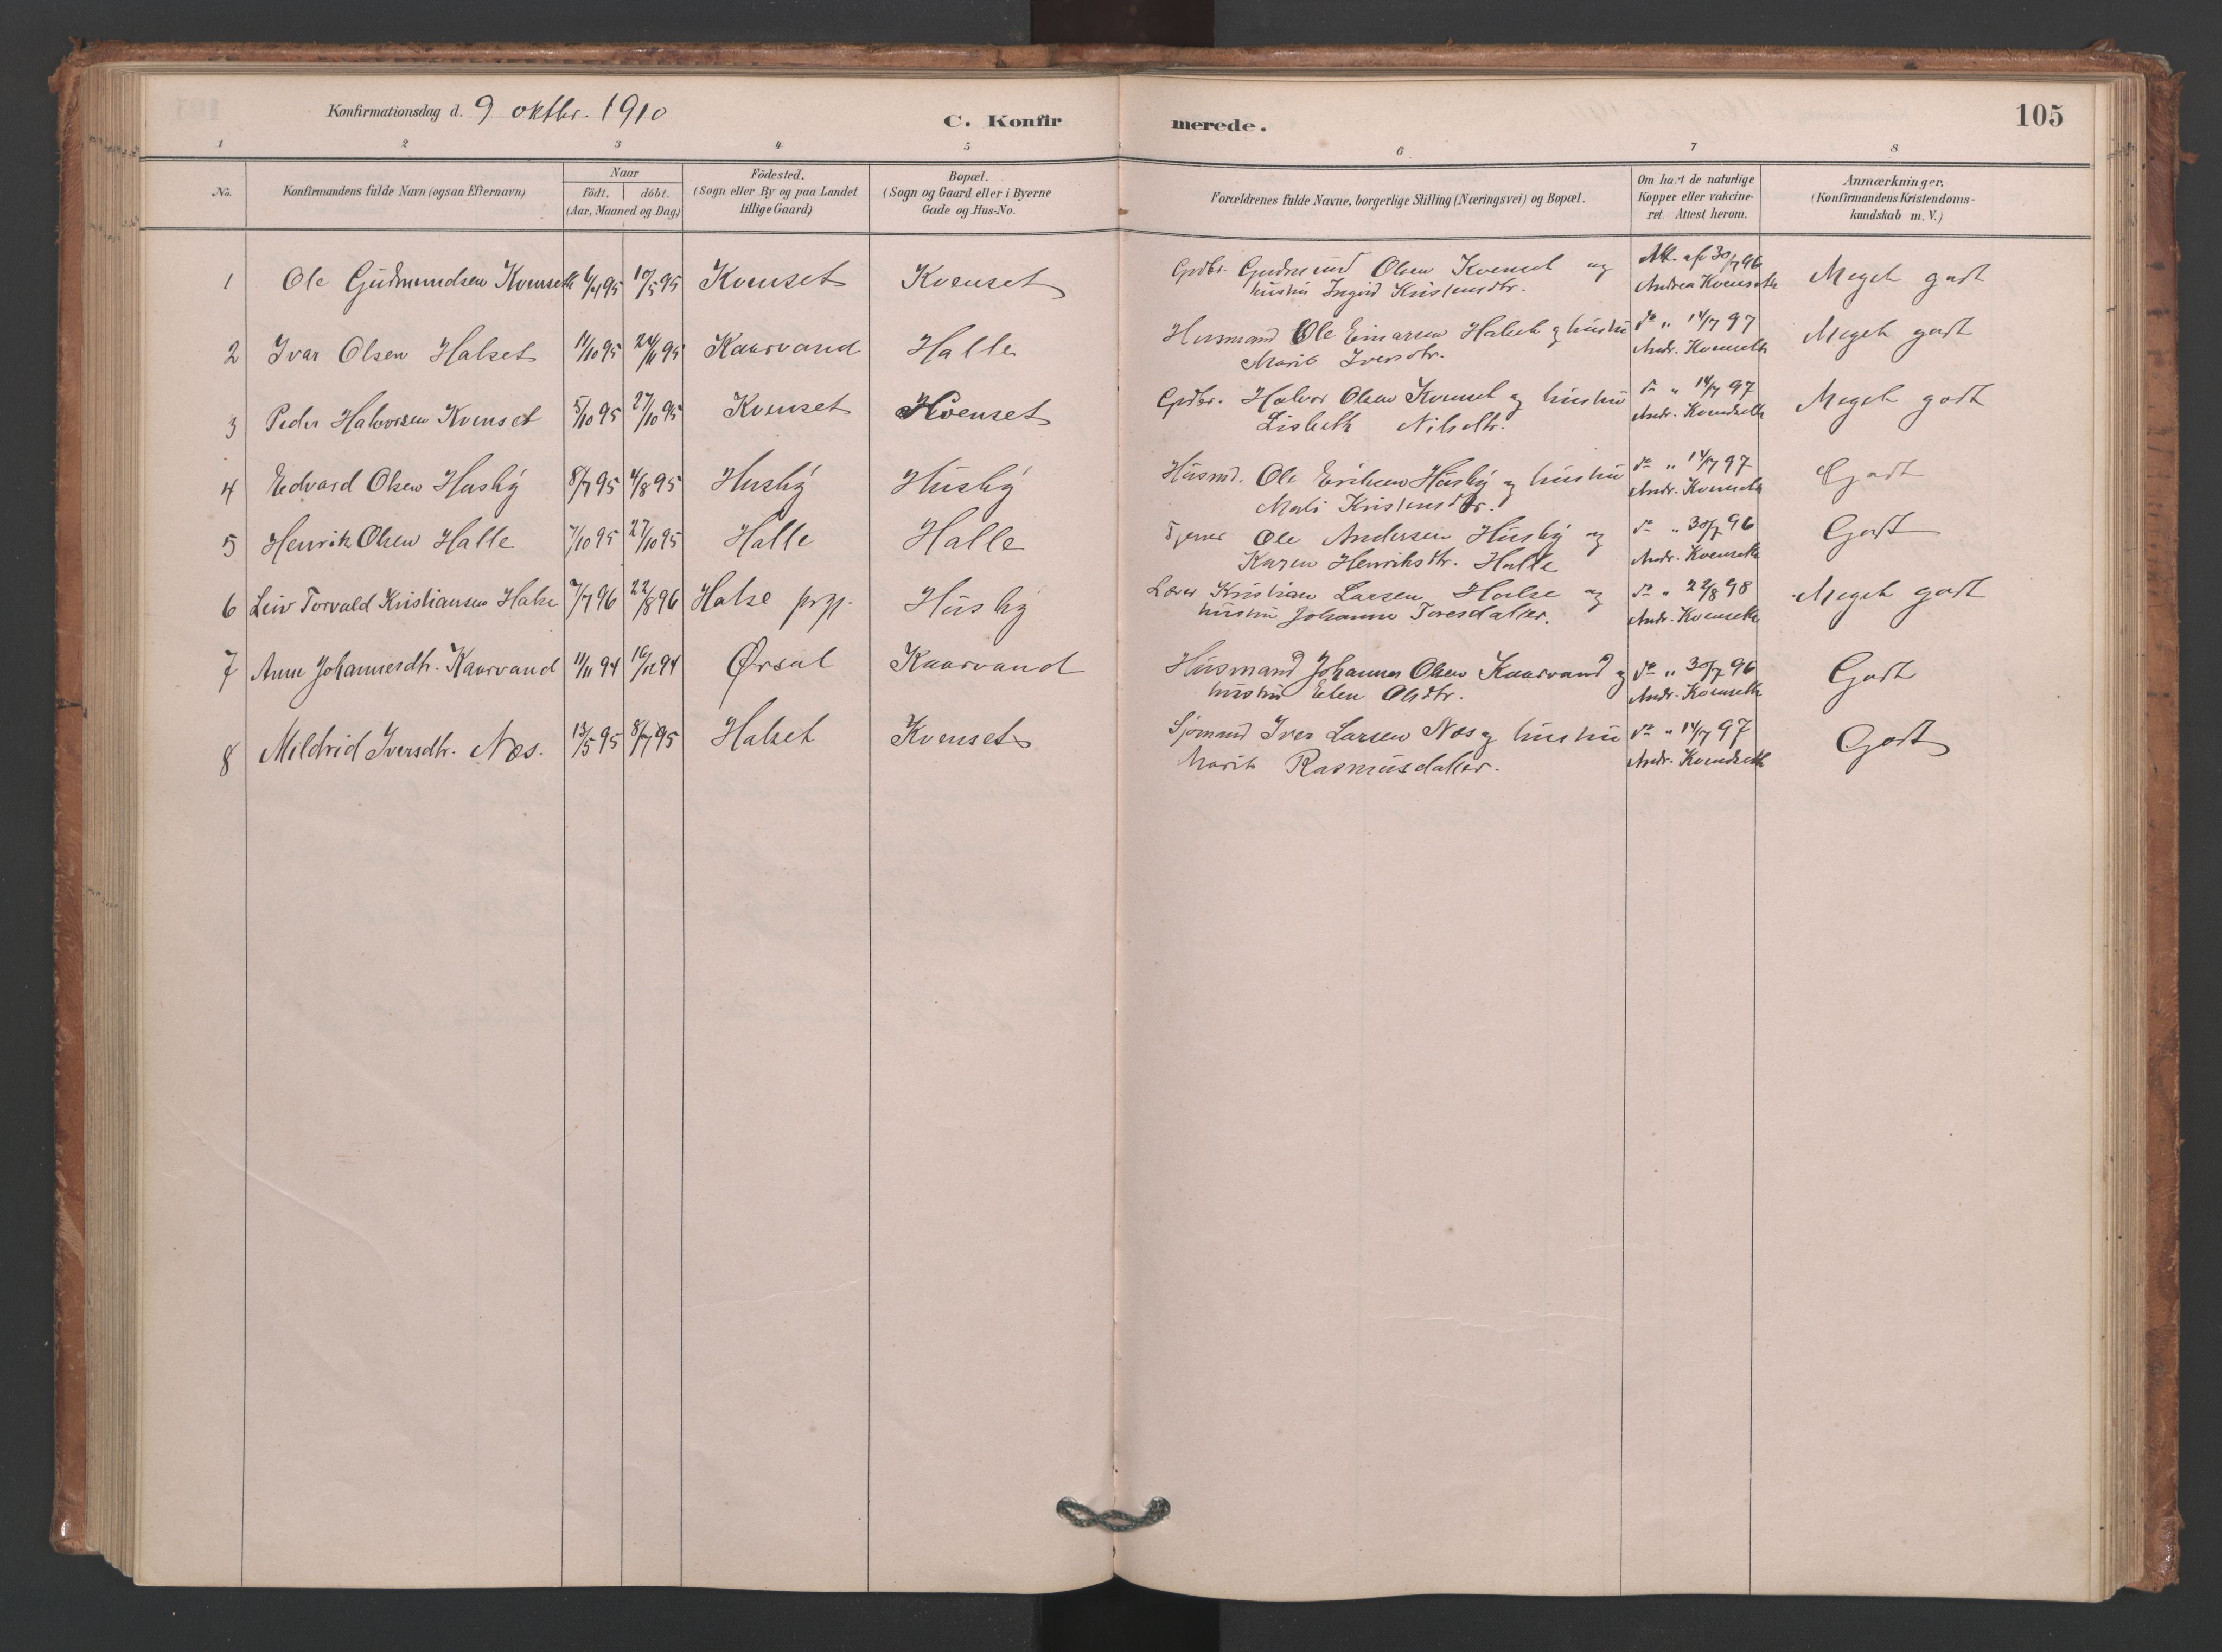 Konfirmationsdag d. 9 oktbr. 1910
C. Konfirmerede.
105
1 2 3 4 5 6 7 8
No. Konfirmandens fulde Navn (ogsaa Efternavn) Naar födt. döbt. (Aar, Maaned og Dag) Födested. (Sogn eller By og paa Landet tillige Gaard) Bopæl. (Sogn og Gaard eller i Byerne Gade og Hus-No. Forældrenes fulde Navne, borgerlige Stilling (Næringsvei) og Bopæl. Om havt de naturlige Kopper eller vakcineret. Attest herom. Anmærkninger. (Konfirmandens Kristendomskundskab m. V.)
1 Ole Gudmundsen Kvenseth 6/4 95 10/5 95 Kvenset Kvenset Grdbr. Gudmund Olsen Kvenset og Att. af 30/7 96 Meget godt
hustru Ingrid Kristensdtr. Andrea Kvenseth
2 Ivar Olsen Halset 11/10 95 24/11 95 Kaarvand Halle Husmand Ole Einarsen Halset og hustru do " 14/7 97 Meget godt
Marit Iversdtr. Andr. Kvenseth
3 Peder Halvorsen Kvenset 5/10 95 27/10 95 Kvenset Kvenset Grdbr. Halvor Olsen Kvenset og hustru do " 14/7 97 Meget godt
Lisbeth Nilsdtr. Andr. Kvendseth
4 Edvard Olsen Husby 8/7 95 4/8 95 Husby Husby Husmd. Ole Eriksen Husby og hustru do " 14/7 97 Godt
Mali Kristensdtr. Andr. Kvenseth
5 Henrik Olsen Halle 7/10 95 27/10 95 Halle Halle Tjener Ole Andersen Husby og do " 30/7 96 Godt
Karen Henriksdtr. Halle Andr. Kvenseth
6 Leiv Torvald Kristiansen Halse 7/7 96 22/8 96 Halse prgj. Husby Lærer Kristian Larsen Halse og do " 22/8 98 Meget godt
hustru Johanne Toresdatter. Andr. Kvenseth
7 Anne Johannesdtr. Kaarvand 11/11 94 16/12 94 Ørsal Kaarvand Husmand Johannes Olsen Kaarvand og do " 30/7 96 Godt
hustru Elen Olsdtr. Andr. Kvenseth
8 Mildrid Iversdtr. Næs. 13/5 95 8/7 95 Halset Kvenset Sjömand Iver Larsen Næs og hustru do " 14/7 97 Godt
Marit Rasmusdatter. Andr. Kvendseth